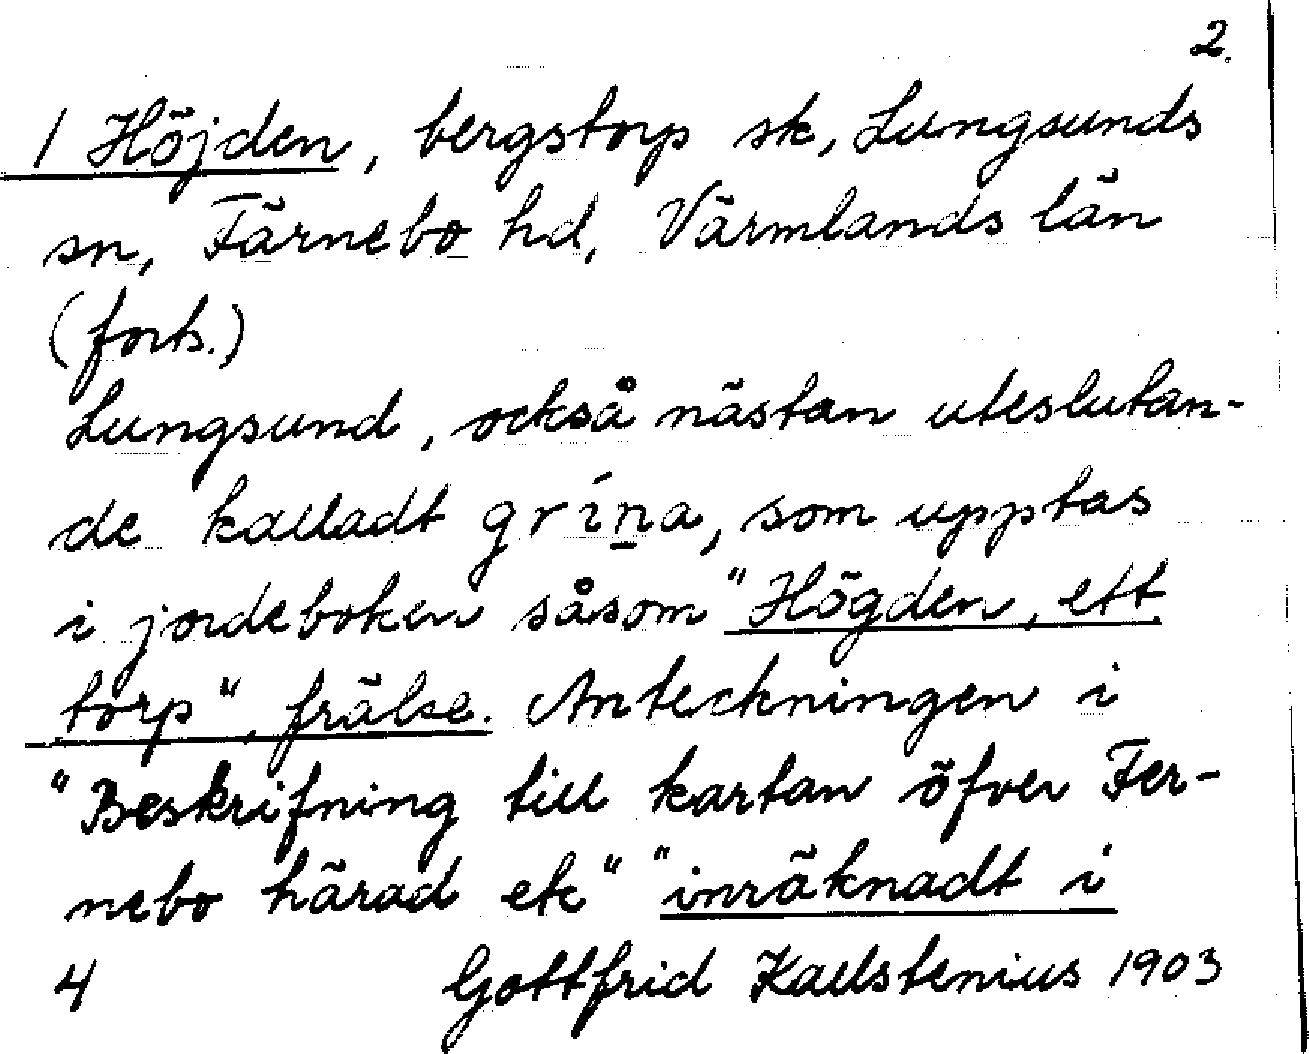 2.
1 Höjden, bergstorp sk, Lungsunds
sn, Färnebo hd, Värmlands län
(forts.)
Lungsund, också nästan uteslutan-
de kalladt grína, som upptas
i jordeboken såsom "Högden, ett
torp", frälse. Anteckningen i
"Beskrifning till kartan öfver Fer-
nebo härad etc" "inräknadt i
4 Gottfrid Kallstenius 1903